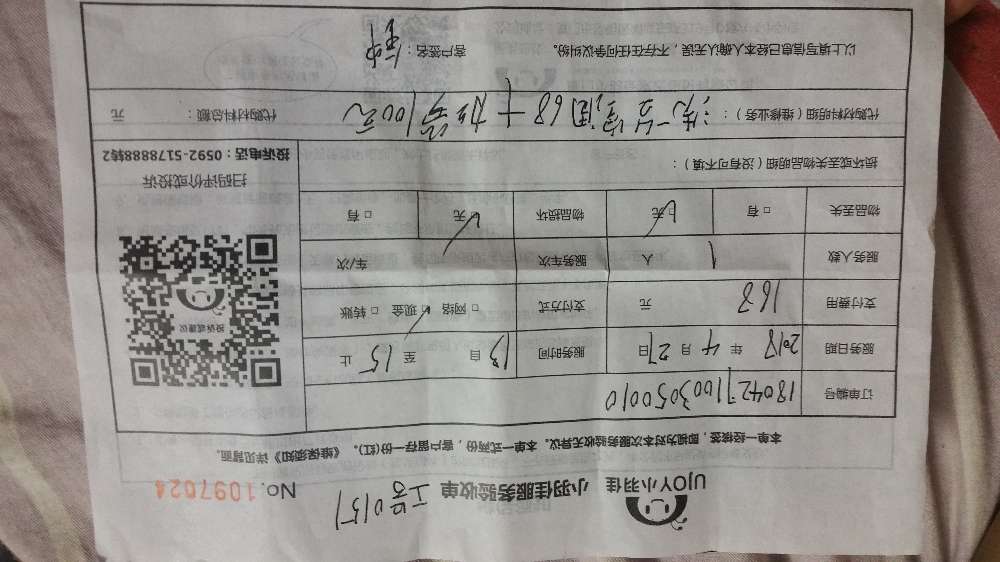 UJOY小羽佳 小羽佳服务验收单 工号0151 No. 1097024
本单一经核签,即视为对本次服务验收无异议。本单一式两份,客户留存一份(红)。《维保须知》详见背面。
订单编号 1804271003050010
服务日期 2018 年 4 月 27 日 服务时间 13 自 至 15 止
支付费用 168 元 支付方式 □ 网络 ☑ 现金 □ 转账
服务人数 1 人 服务车次 车/次
物品丢失 □ 有 ☑ 无 物品损坏 ☑ 无 □ 有
投诉或建议
扫码评价或投诉
投诉电话:0592-5178888转2
损坏或丢失物品明细(没有可不填):
代购材料明细(维修业务): 洗一台空调68+加氟100元 代购材料总额: 元
以上填写信息已经本人确认无误,不存在任何争议纠纷。 客户签名: